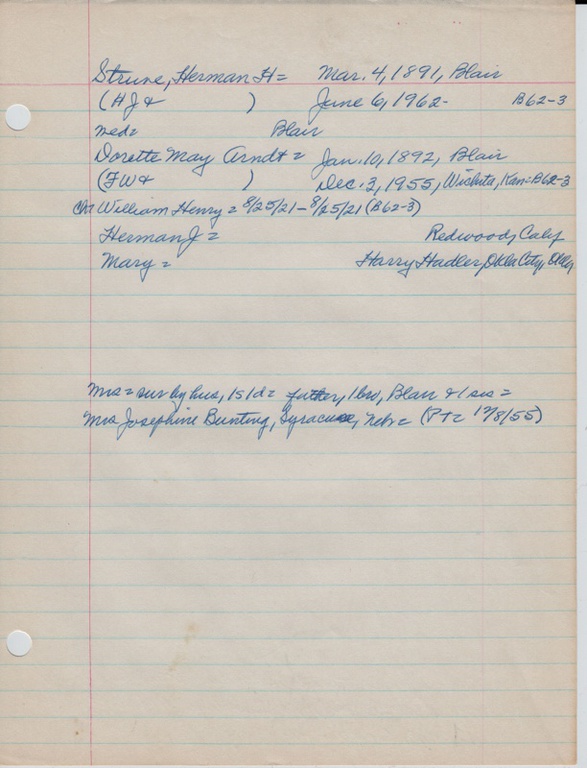 Struve, Herman H = Mar. 4, 1891, Blair
(HJ & ) June 6, 1962- B62-3
med= Blair
Dorette May Arndt = Jan. 10, 1892, Blair
(FW & ) Dec. 3, 1955, Wichita, Kan= B62-3
Ch William Henry = 8/25/21 - 8/25/21 (B62-3)
Herman J = Redwood, Calif
Mary = Harry Hadler, Okla City, Okla
Mrs = sur by hus, 1s 1d = father, 1 bro, Blair & 1 sis =
Mrs Josephine Bunting, Syracuse, Nebr = (PT= 12/8/55)